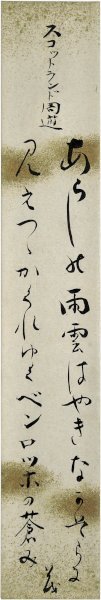 スコットランド周遊
あらしの雨雲はやきながそらに
見えつゝかくれゆくベンロッホの蒼み